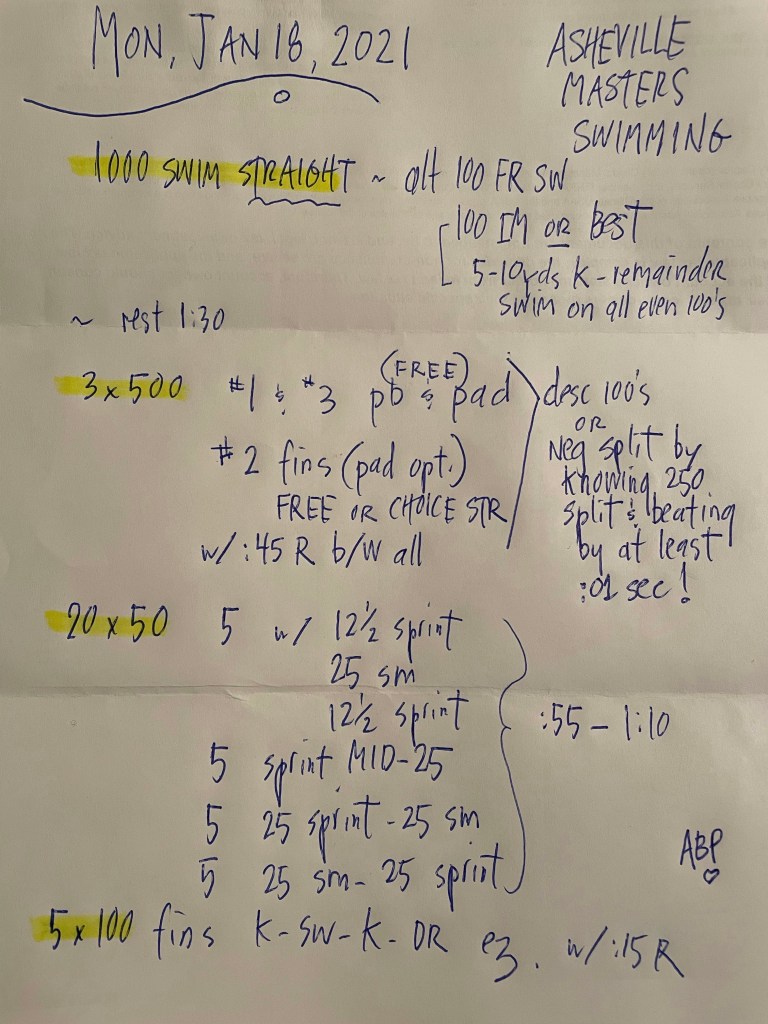 MON, JAN 18, 2021
ASHEVILLE
MASTERS
SWIMMING
1000 SWIM STRAIGHT ~ alt 100 FR SW
100 IM OR BEST
5-10yds K-remainder
swim on all even 100's
~ rest 1:30
3 x 500 #1 & #3 pb & pad (FREE)
#2 fins (pad opt.)
FREE OR CHOICE STR
w/ :45 R b/w all
desc 100's
OR
Neg split by
knowing 250
split & beating
by at least
:01 sec!
20 x 50 5 w/ 12½ sprint
25 sm
12½ sprint
5 sprint MID-25
5 25 sprint - 25 sm
5 25 sm - 25 sprint
:55 - 1:10
ABP
5 x 100 fins K-SW-K-DR ez. w/:15 R